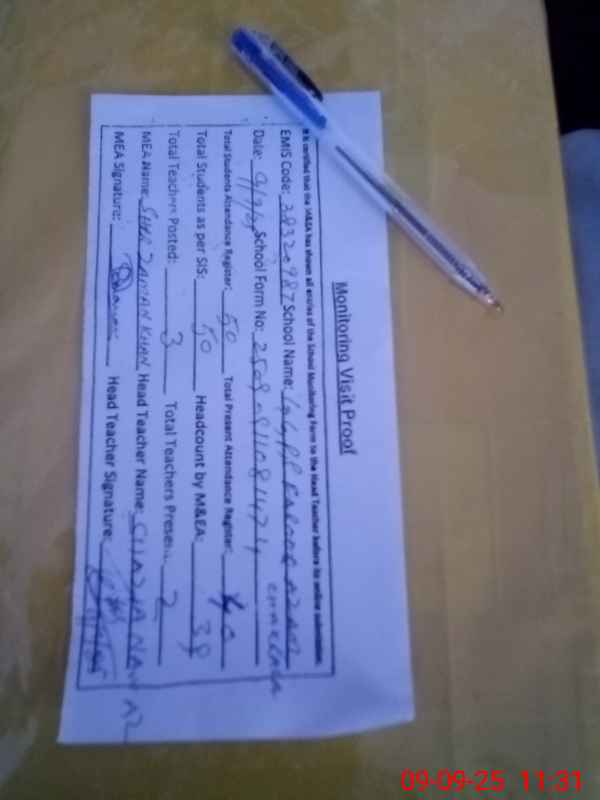 Monitoring Visit Proof
It is certified that the M&EA has shown all entries of the School Monitoring Form to the Head Teacher before its online submission.
EMIS Code: School Name:
Date: 9/9/25 School Form No:
Total Students Attendance Register: 50 Total Present Attendance Register:
Total Students as per SIS: 50 Headcount by M&EA: 39
Total Teachers Posted: 3 Total Teachers Present: 2
MEA Name: SHER ZAMAN KHAN Head Teacher Name: SHAZIA NAWAZ
MEA Signature: Head Teacher Signature:
09-09-25 11:31